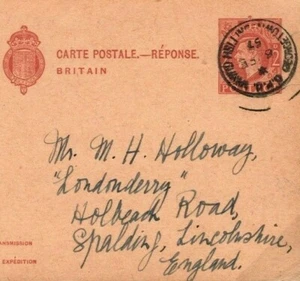 CARTE POSTALE.—RÉPONSE.
BRITAIN
Mr. M. H. Holloway,
"Londonderry"
Holbeach Road,
Spalding, Lincolnshire,
England.
EXPÉDITION